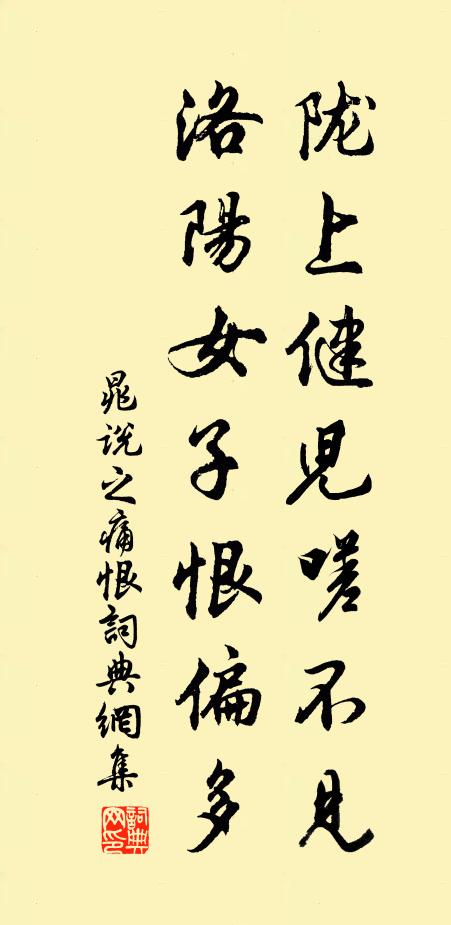 陇上健児嗟不見
洛陽女子恨偏多
晁說之痛恨詞典網集
詞典
网印